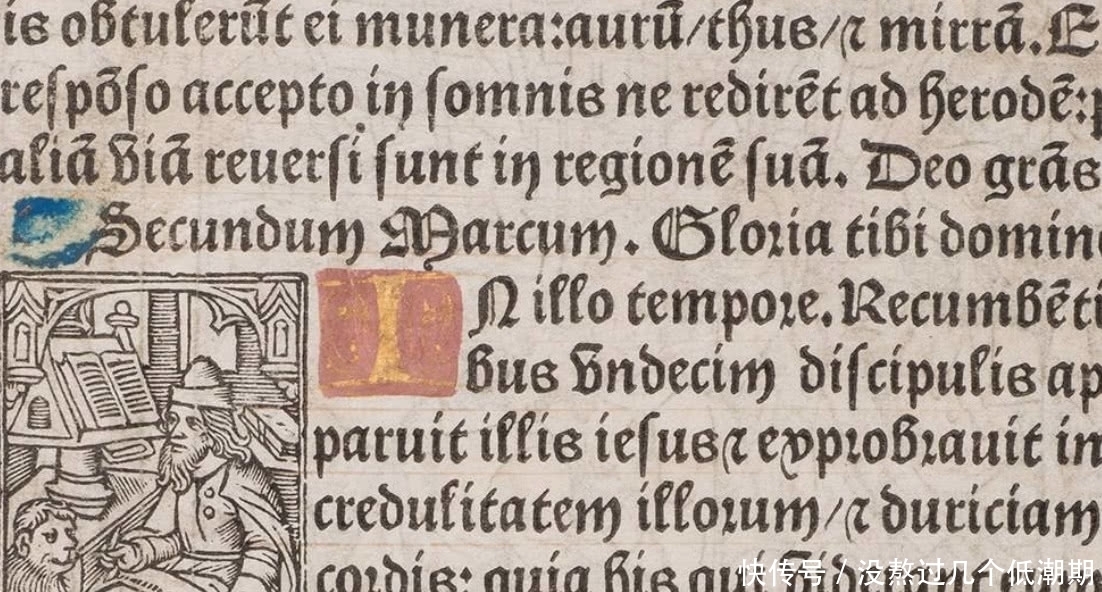 is obtulerūt ei munera:aurū/thus/⁊ mirrā.E
reſpōſo accepto in ſomnis ne redirēt ad herodē:p
aliā viā reuerſi ſunt in regionē ſuā. Deo grās
Secundum Marcum. Gloria tibi domine
IN illo tempore. Recumbēti
bus vndecim diſcipulis ap
paruit illis ieſus⁊ exprobrauit in
credulitatem illorum/⁊ duriciam
cordis: quia his qui viderant eum
快传号 / 没熬过几个低潮期